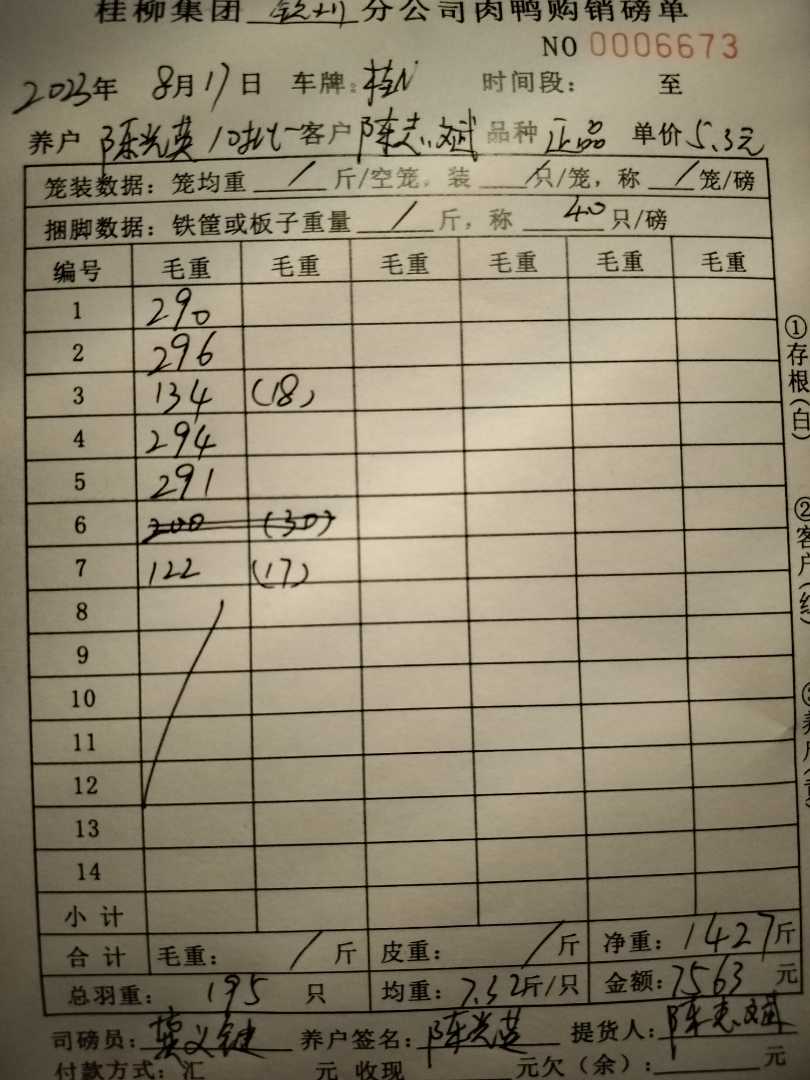 桂柳集团 钦州 分公司肉鸭购销磅单
NO 0006673
2023年 8月17日 车牌: 时间段: 至
养户 陈光英 10批 客户 陈志斌 品种 正品 单价 5.3元
笼装数据: 笼均重 / 斤/空笼, 装 / 只/笼, 称 / 笼/磅
捆脚数据: 铁筐或板子重量 / 斤, 称 40 只/磅
编号 毛重 毛重 毛重 毛重 毛重 毛重
1 290
2 296
3 134 (18)
4 294
5 291
6 200 (30)
7 122 (17)
8
9
10
11
12
13
14
小计
合计 毛重: / 斤 皮重: / 斤 净重: 1427斤
总羽重: 195 只 均重: 7.32斤/只 金额: 7563 元
司磅员: 养户签名: 陈光英 提货人: 陈志斌
付款方式: 汇 元 收现 元欠(余): 元
①存根(白)
②客户(红)